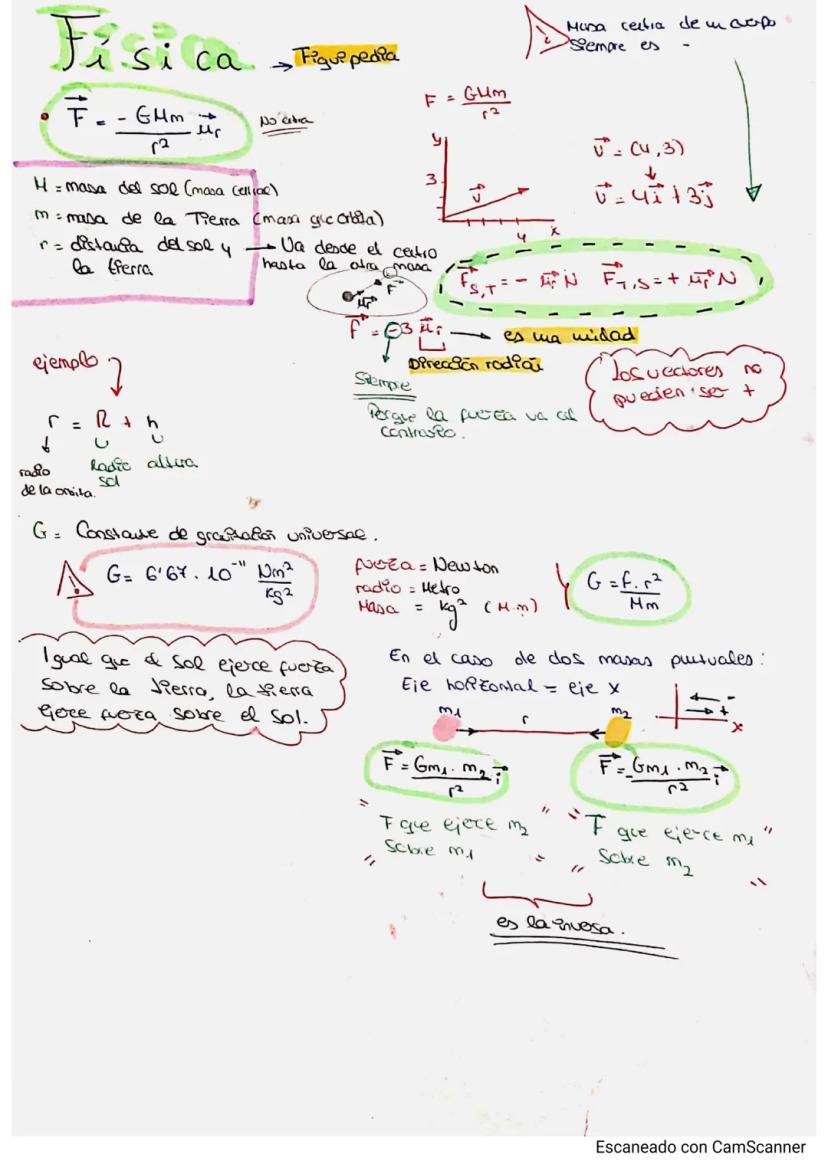 Física → Fiquipedia
Masa centra de un cuerpo
siempre es -
F = - GMm / r² u_r
No entra
F = GMm / r²
y
3
v
4
x
v = (4,3)
↓
v = 4i + 3j
M = masa del sol (masa central)
m = masa de la Tierra (masa que orbita)
r = distancia del sol y la tierra → Va desde el centro hasta la otra masa
F
u_r
F_S,T = - u_r N F_T,S = + u_r N
F = -3 u_r → es una unidad
Dirección radial
Siempre
Porque la fuerza va al
contrario.
Los vectores no
pueden ser +
ejemplo
r = R + h
radio
de la orbita.
Radio
sol
altura
G = Constante de gravitación universal.
G = 6'67 · 10⁻¹¹ Nm² / kg²
fuerza = Newton
radio = Metro
Masa = kg² (M.m)
G = f. r² / Mm
Igual que el Sol ejerce fuerza
sobre la Tierra, la tierra
ejerce fuerza sobre el Sol.
En el caso de dos masas puntuales:
Eje horizontal = eje x
m1 r m2
- + x
F = Gm1. m2 / r² i
F = -Gm1. m2 / r² i
" F que ejerce m2
sobre m1 "
" F que ejerce m1
sobre m2 "
es la inversa.
Escaneado con CamScanner